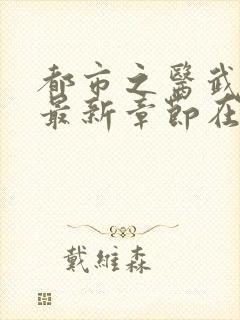 都市之醫武
最新章節在
戴維森